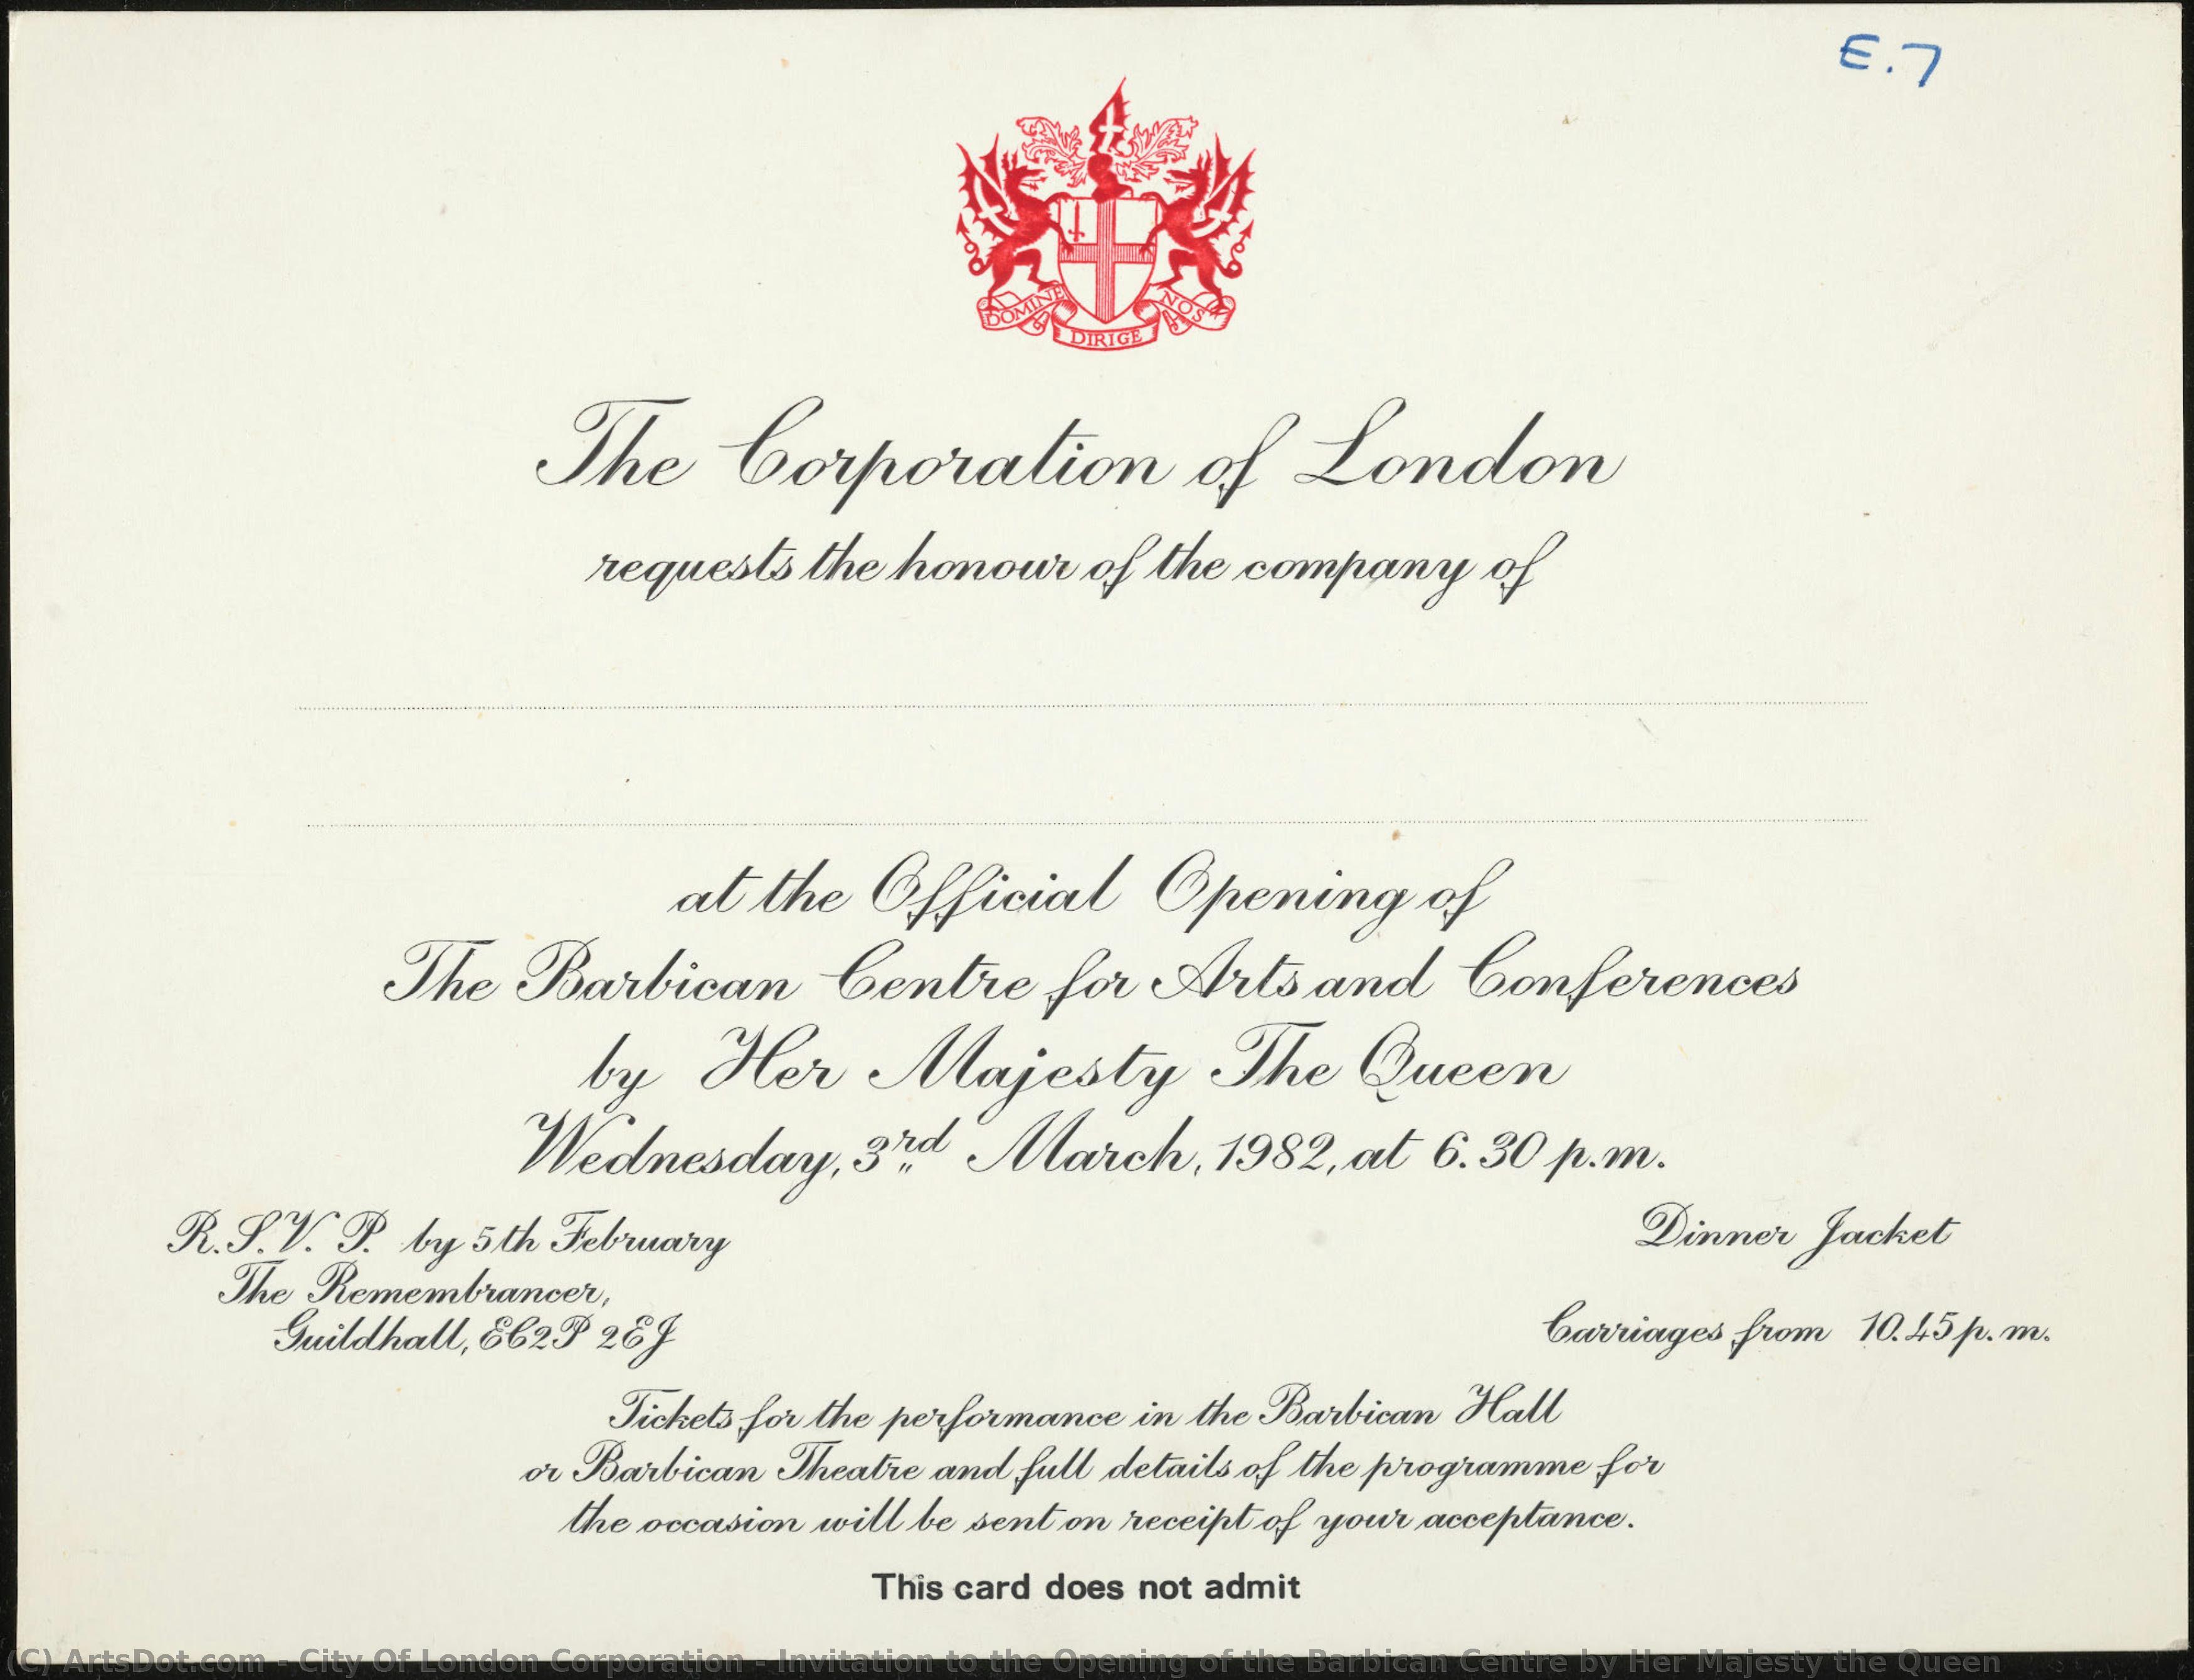 E.7
DOMINE DIRIGE NOS
The Corporation of London
requests the honour of the company of
at the Official Opening of
The Barbican Centre for Arts and Conferences
by Her Majesty The Queen
Wednesday, 3rd March, 1982, at 6.30 p.m.
R.S.V.P. by 5th February
The Remembrancer,
Guildhall, EC2P 2EJ
Dinner Jacket
Carriages from 10.45 p.m.
Tickets for the performance in the Barbican Hall
or Barbican Theatre and full details of the programme for
the occasion will be sent on receipt of your acceptance.
This card does not admit
(C) ArtsDot.com - City Of London Corporation - Invitation to the Opening of the Barbican Centre by Her Majesty the Queen